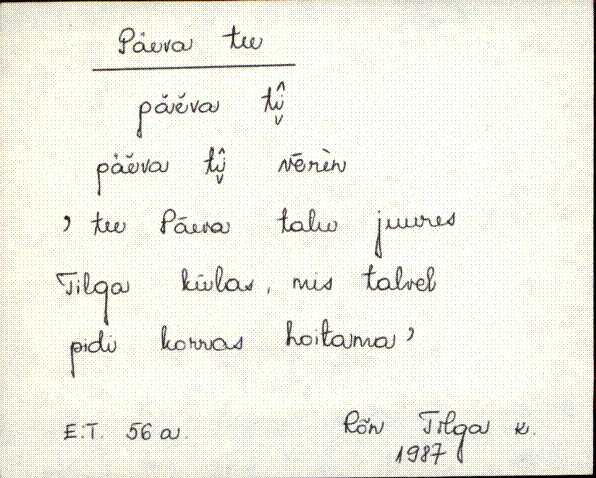 Päeva tee
päĕva tî̬
pä̀ĕva tî̬ vērèn
’ tee Päeva talu juures
Tilga külas, mis talvel
pidi korras hoitama ’
E.T. 56 a
Rõn Tilga k.
1987